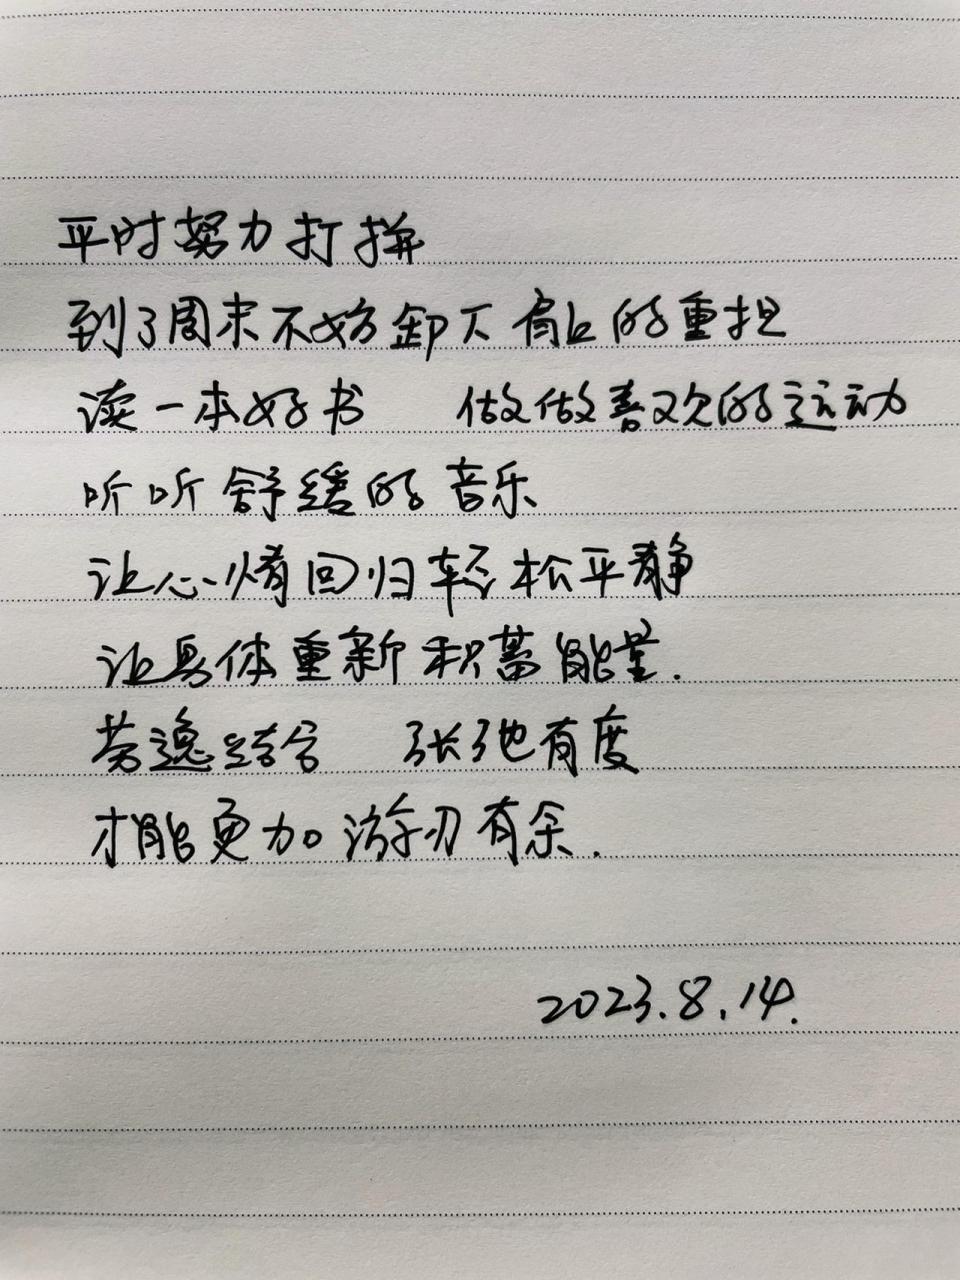 平时努力打拼
到了周末不妨卸下肩上的重担
读一本好书 做做喜欢的运动
听听舒缓的音乐
让心情回归轻松平静
让身体重新积蓄能量.
劳逸结合 张弛有度
才能更加游刃有余.
2023.8.14.